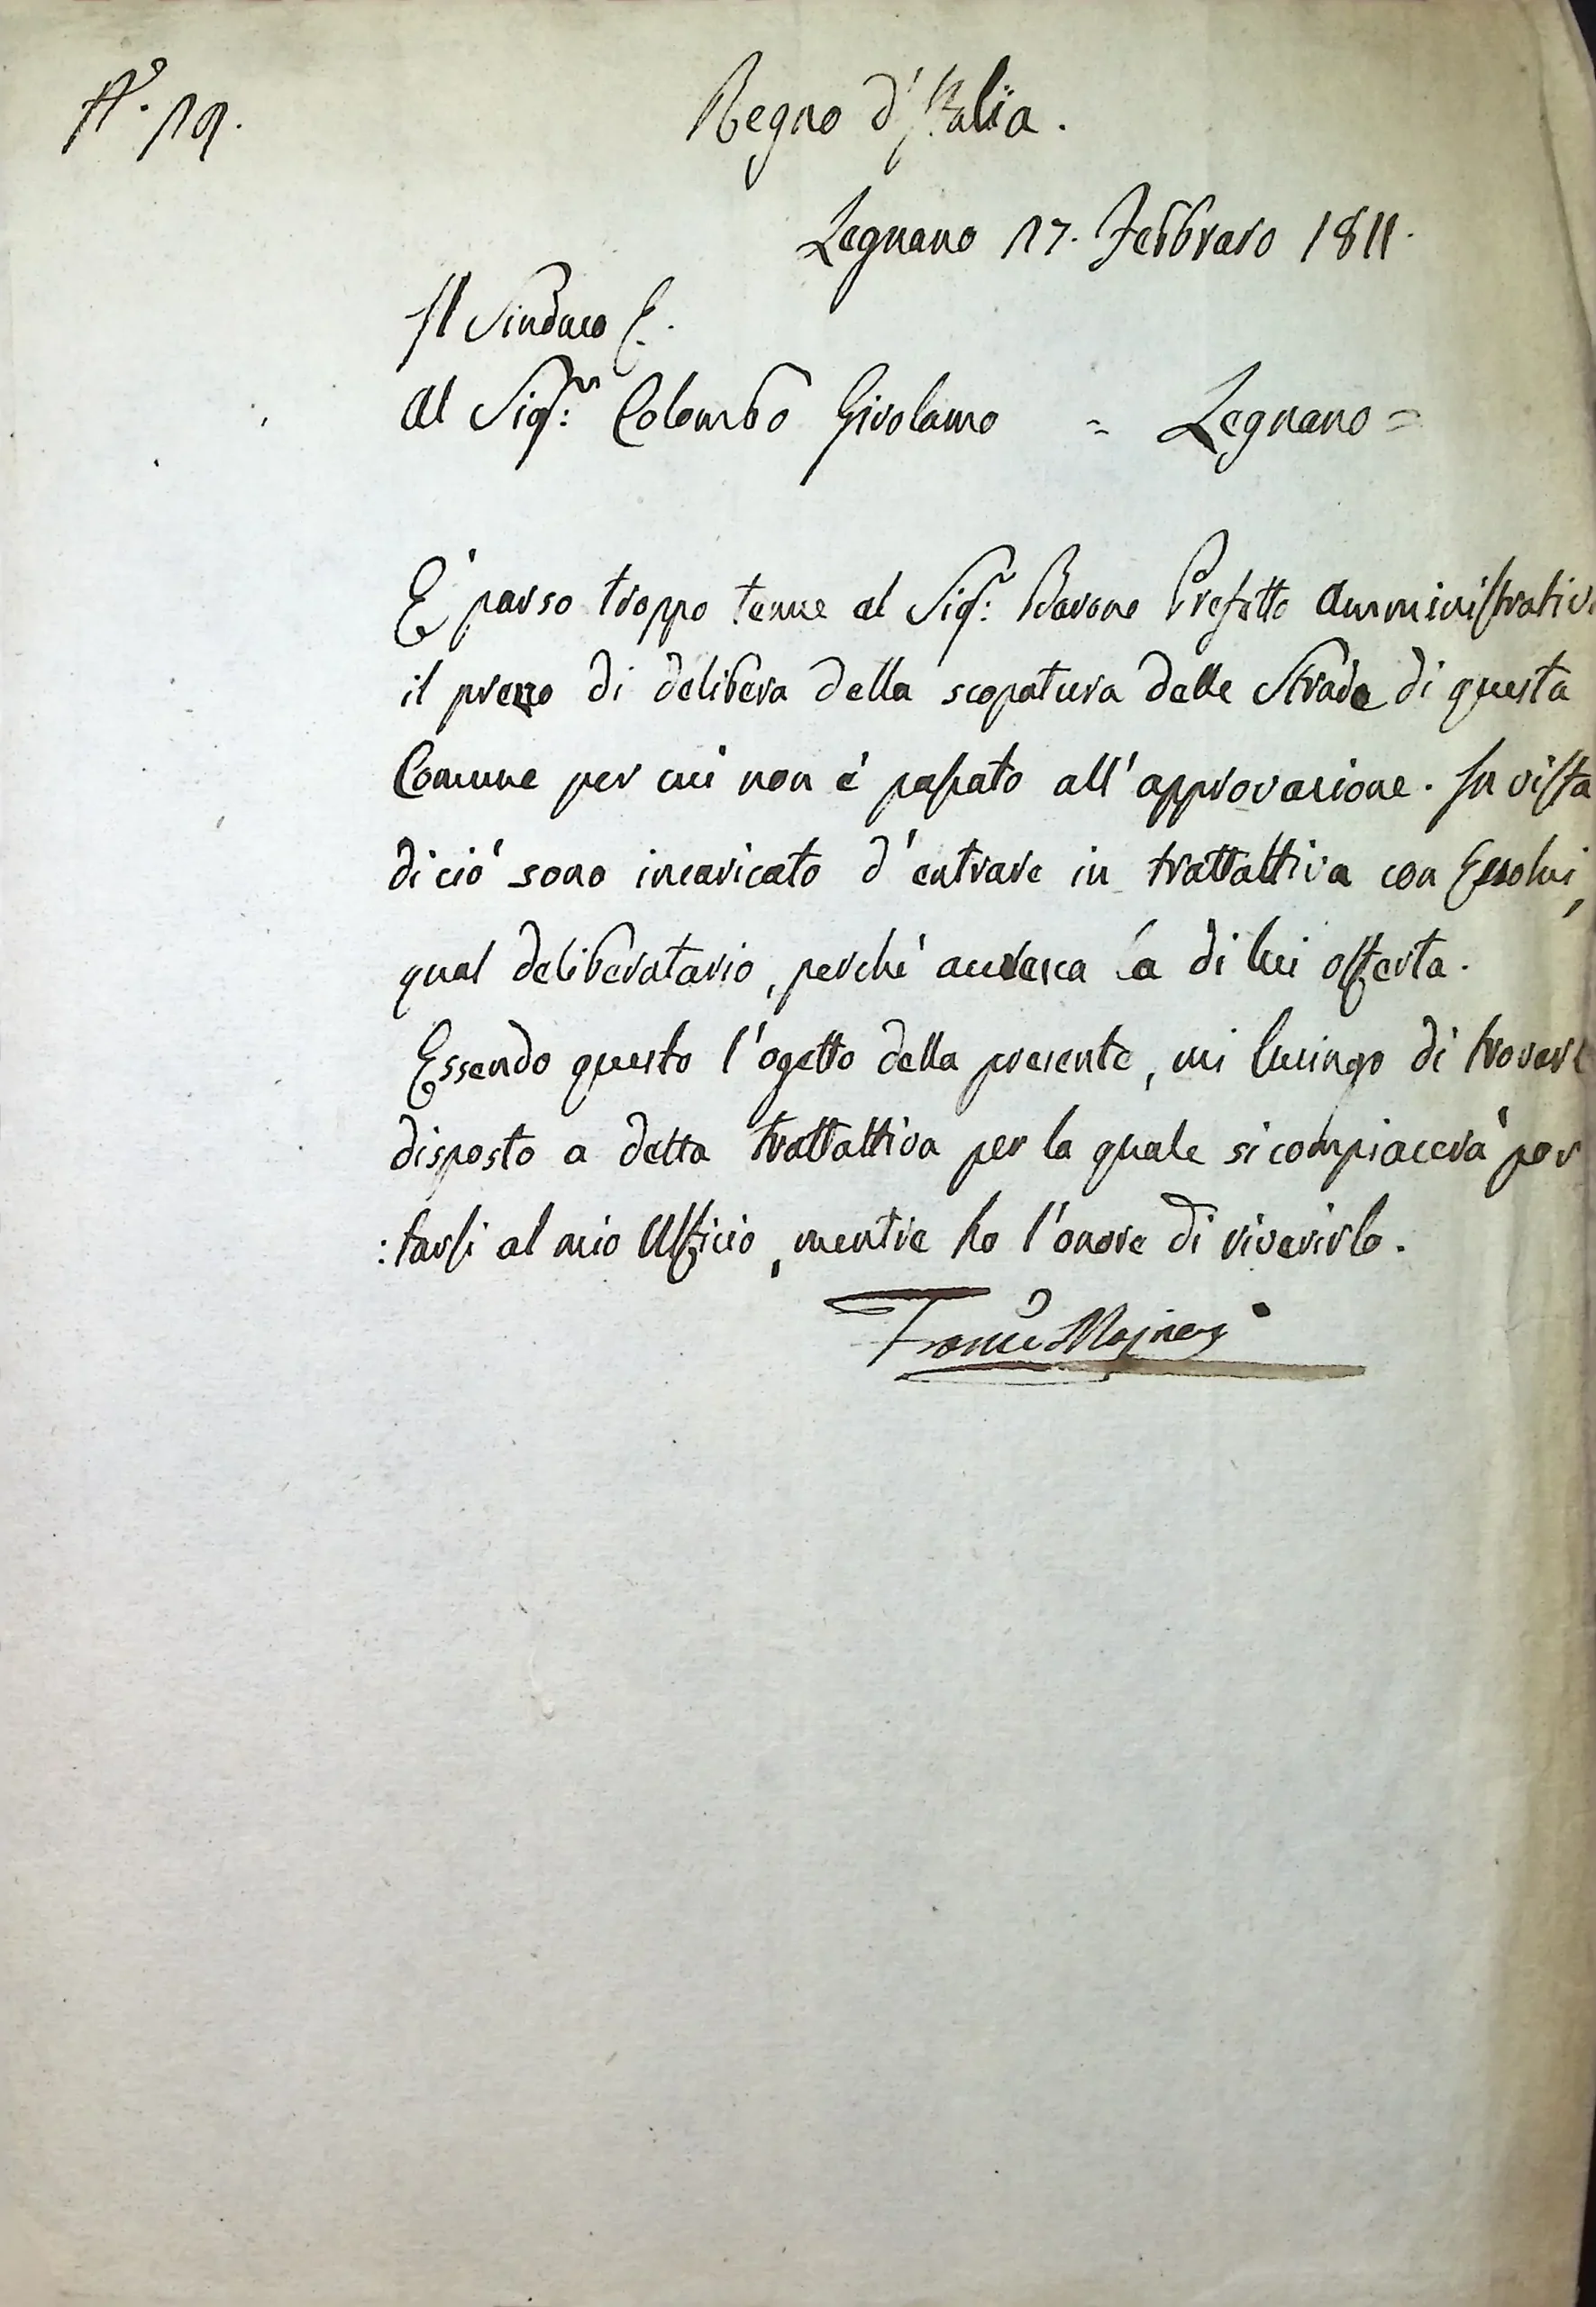 N.º 19.
Regno d'Italia.
Legnano 17. Febbraro 1811.
Il Sindaco
Al Sig.r Colombo Girolamo = Legnano =
E' parso troppo tenue al Sig.r Barone Prefetto Amministrativo
il prezzo di delibera della scopatura delle Strade di questa
Comune per cui non è passato all'approvazione. In vista
di ciò sono incaricato d'entrare in trattattiva con Essolui,
qual deliberatario, perchè accresca la di lui offerta.
Essendo questo l'ogetto della presente, mi lusingo di trovarlo
disposto a detta trattattiva per la quale si compiacerà por
:tarsi al mio Ufficio, mentre ho l'onore di riverirlo.